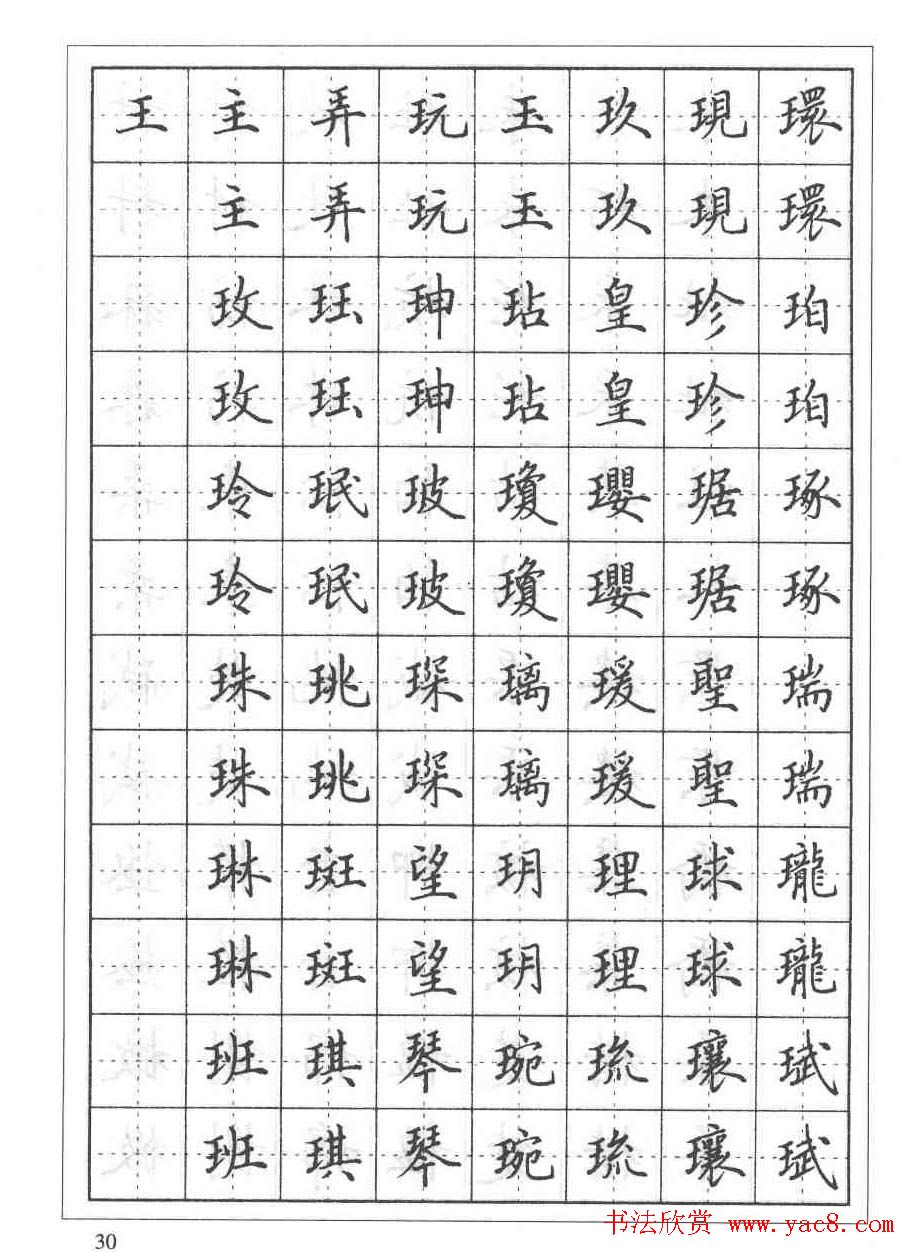 王 主 弄 玩 玉 玖 現 環
主 弄 玩 玉 玖 現 環
玫 珏 珅 玷 皇 珍 珀
玫 珏 珅 玷 皇 珍 珀
玲 珉 玻 瓊 瓔 琚 琢
玲 珉 玻 瓊 瓔 琚 琢
珠 珧 琛 璃 瑗 聖 瑞
珠 珧 琛 璃 瑗 聖 瑞
琳 斑 望 玥 理 球 瓏
琳 斑 望 玥 理 球 瓏
班 琪 琴 琬 琉 瓖 珷
班 琪 琴 琬 琉 瓖 珷
书法欣赏 www.yac8.com
30